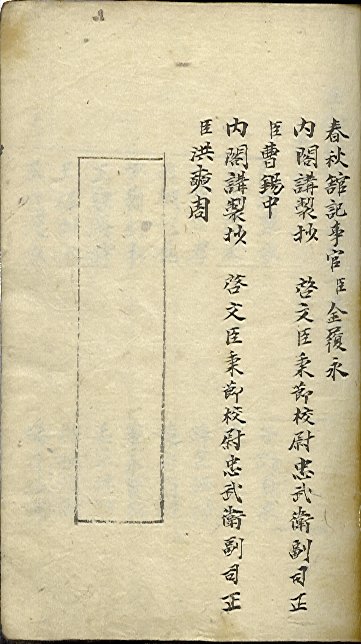 春秋館記事官臣金履永
內閣講製抄 啓文臣秉節校尉忠武衛副司正
臣曹錫中
內閣講製抄 啓文臣秉節校尉忠武衛副司正
臣洪奭周